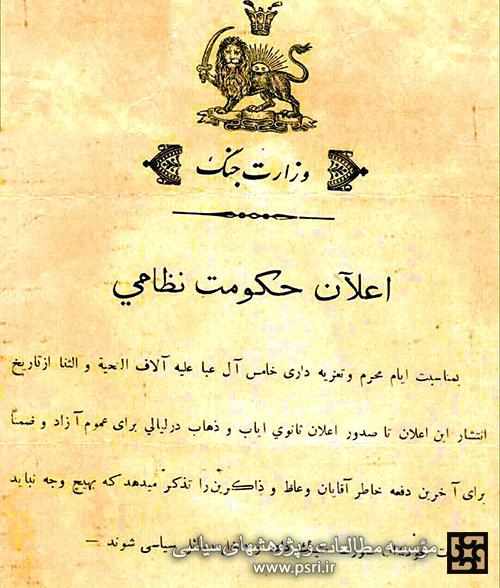 وزارت جنگ
اعلآن حکومت نظامي
بمناسبت ایام محرم وتعزیه داری خامس آل عبا علیه آلاف التحیة و الثنا ازتاریخ
انتشار این اعلان تا صدور اعلان ثانوي ایاب و ذهاب درلیالي برای عموم آزاد و ضمناً
برای آخرین دفعه خاطر آقایان وعاظ و ذاکرین را تذکر میدهد که بهیچ وجه نباید
سیاسی شوند —
مؤسسه مطالعات و پژوهشهای سیاسی
www.psri.ir